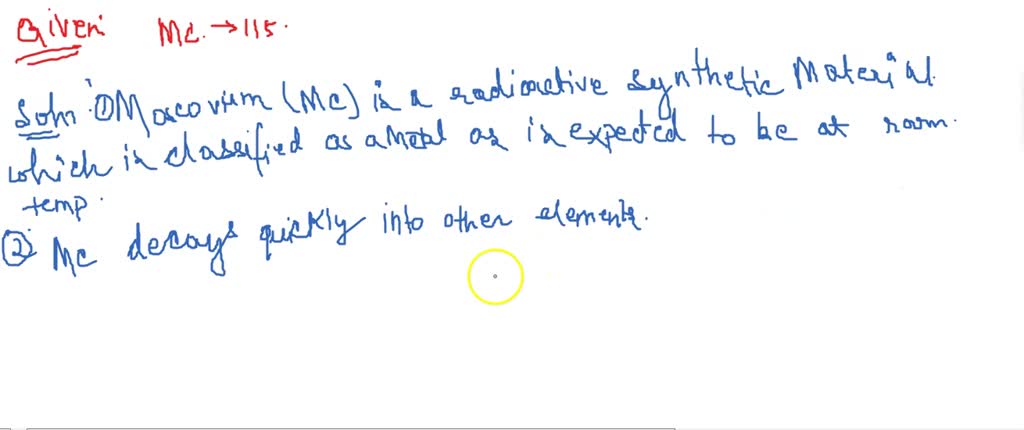 Given: Mc. → 115.
Soln. ① Moscovium (Mc) is a radioactive synthetic Material
which is classified as a Metal as is expected to be at room.
temp.
② Mc decays quickly into other elements.